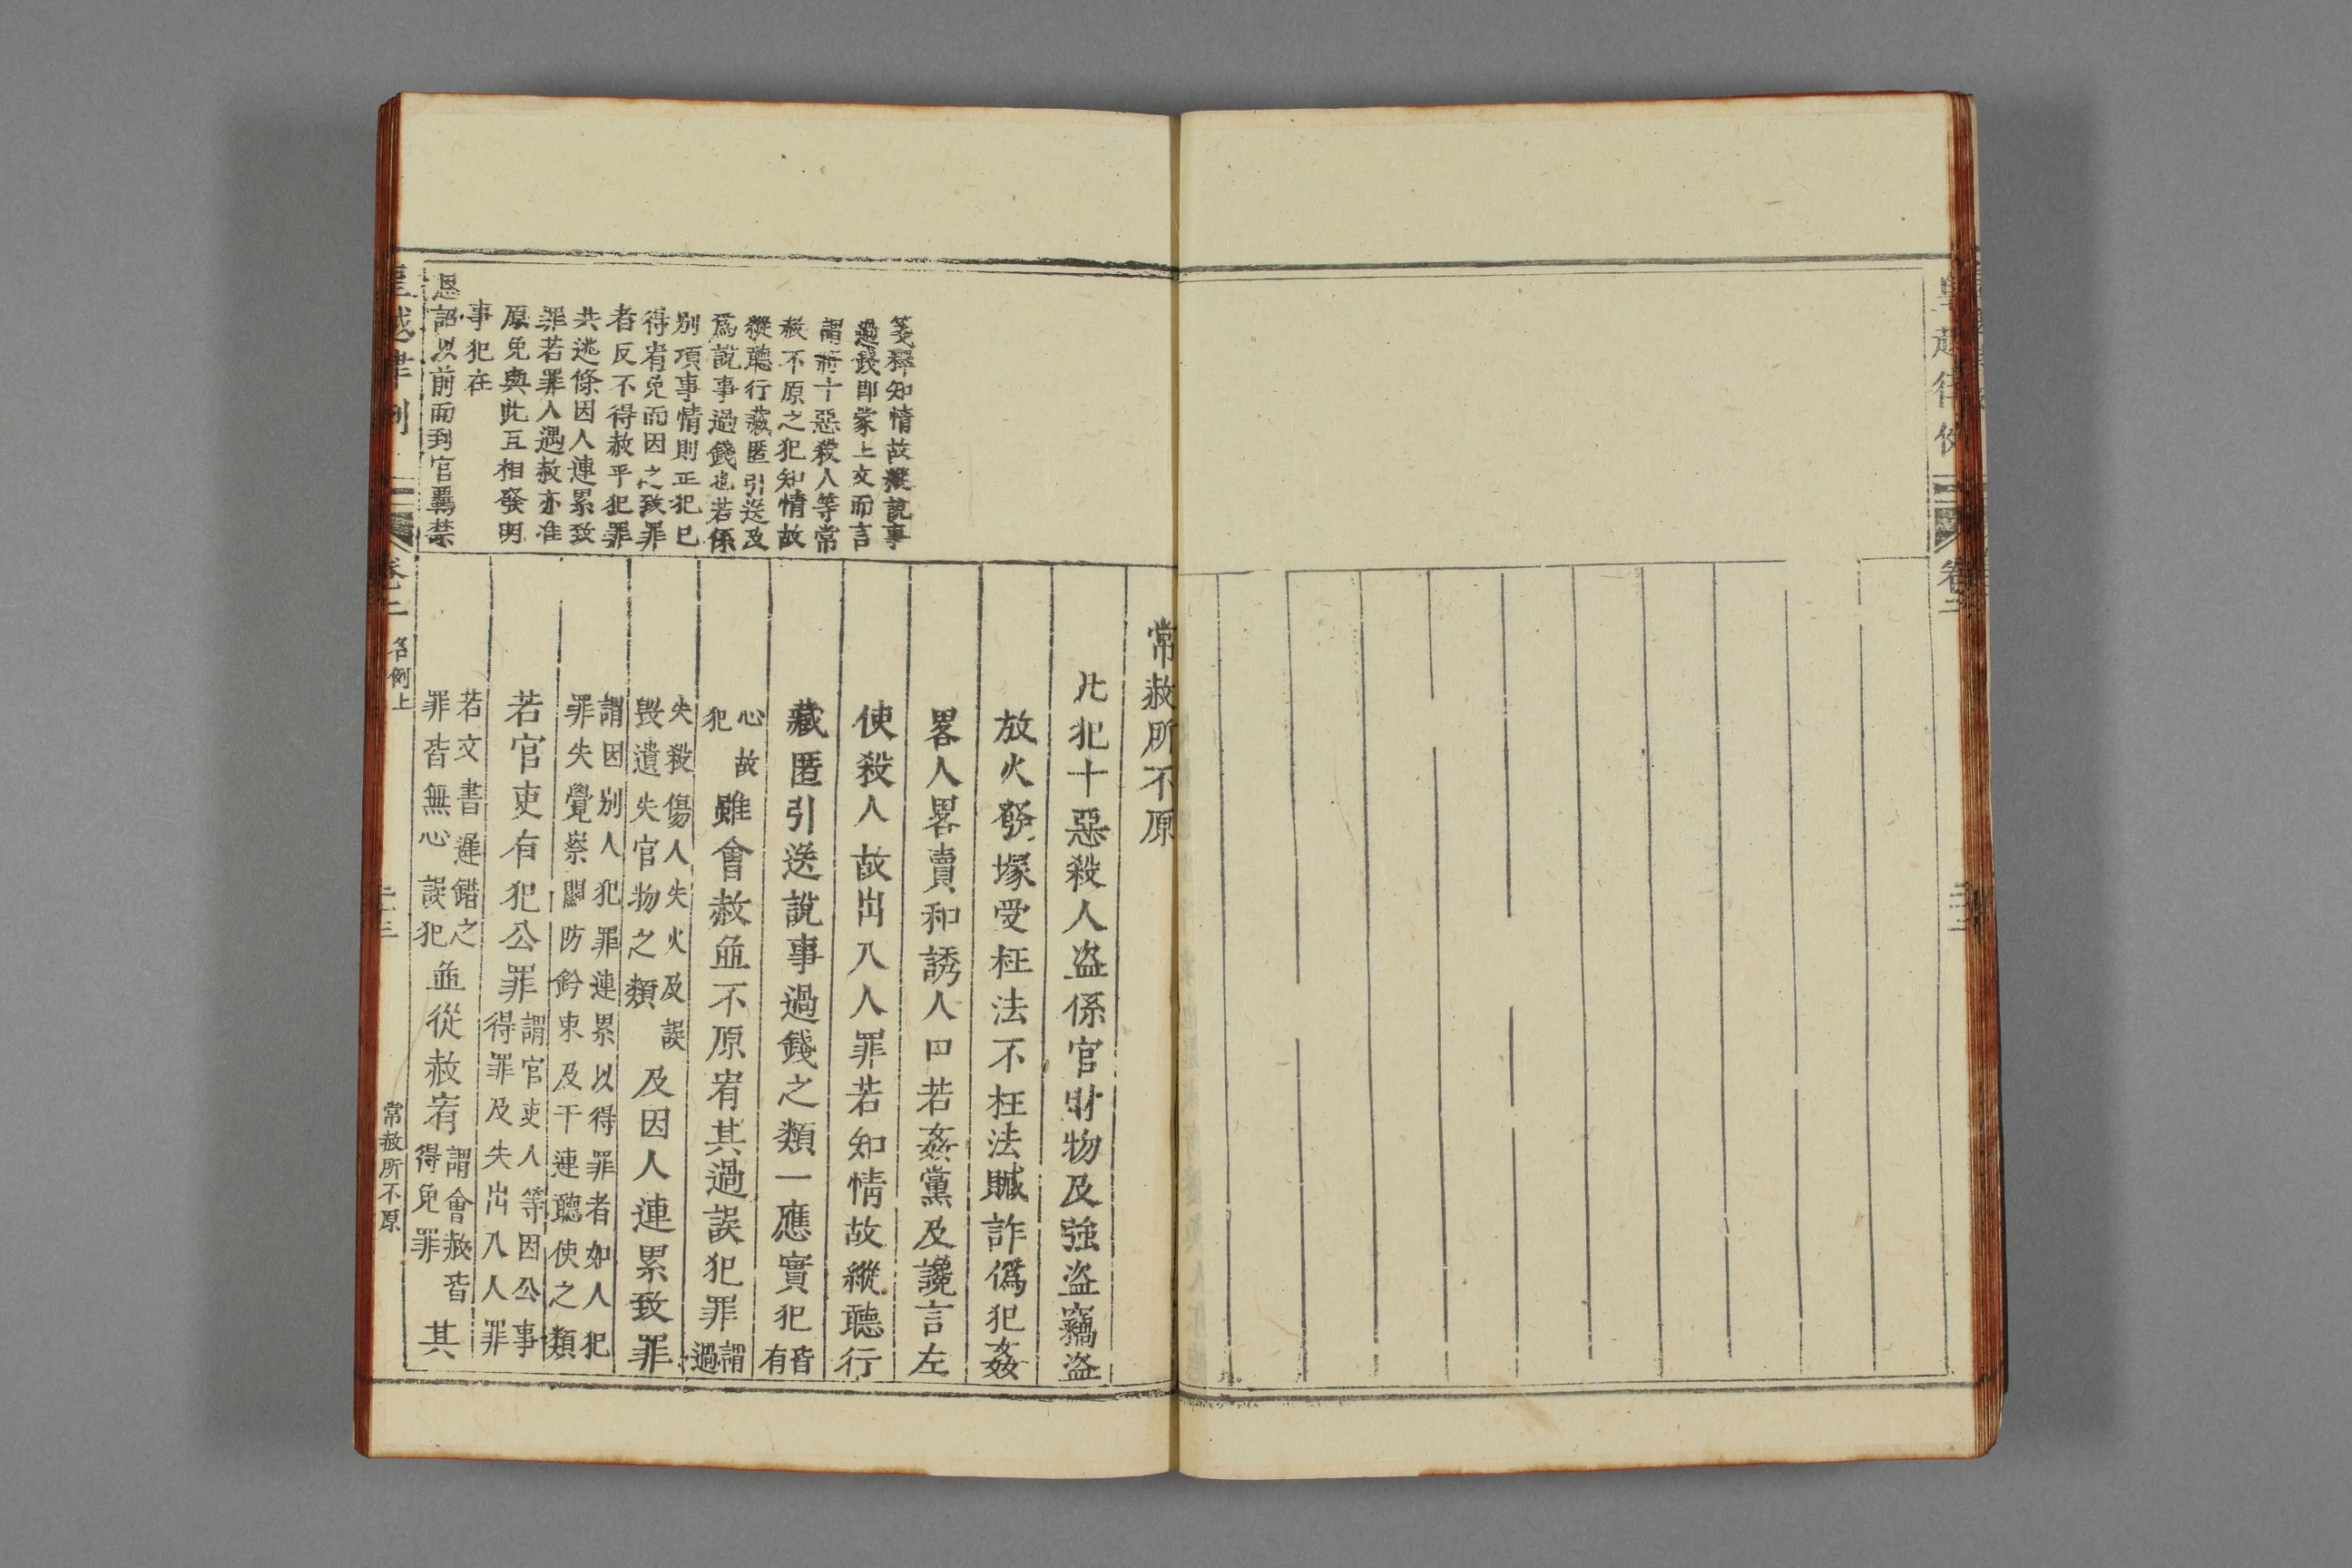 皇越律例
卷二
二十二
箋釋知情故縱說事
過錢即蒙上文而言
謂將十惡殺人等常
赦不原之犯知情故
縱聽行藏匿引送及
爲說事過錢也若係
別項事情則正犯已
得宥免而因之致罪
者反不得赦乎犯罪
共逃條因人連累致
罪若罪人遇赦亦准
原免與此互相發明
事犯在
恩詔以前而到官羈禁
常赦所不原
凡犯十惡殺人盜係官財物及強盜竊盜
放火發塚受枉法不枉法贓詐僞犯姦
畧人畧賣和誘人口若姦黨及讒言左
使殺人故出入人罪若知情故縱聽行
藏匿引送說事過錢之類一應實犯皆有
心故犯雖會赦並不原宥其過誤犯罪謂過
失殺傷人失火及誤毀遺失官物之類及因人連累致罪
謂因別人犯罪連累以得罪者如人犯罪失覺察關防鈐束及干連聽使之類
若官吏有犯公罪謂官吏人等因公事得罪及失出入人罪
若文書遲錯之罪皆無心誤犯並從赦宥謂會赦皆得免罪其
皇越律例
卷二
名例上
二十三
常赦所不原